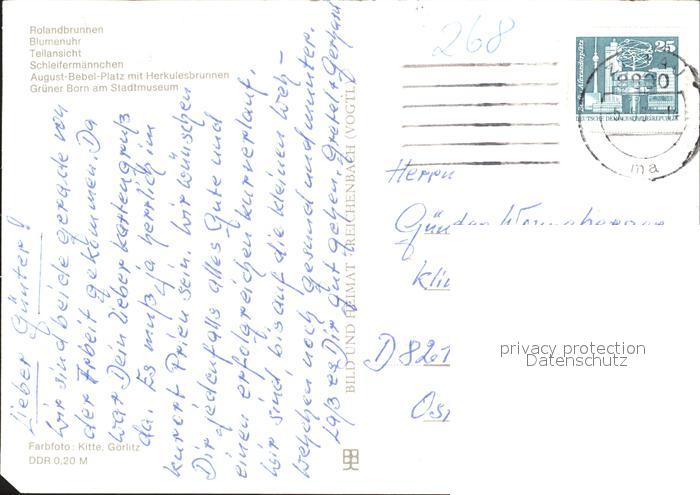 Rolandbrunnen
Blumenuhr
Teilansicht
Schleifermännchen
August-Bebel-Platz mit Herkulesbrunnen
Grüner Born am Stadtmuseum
Lieber Günter!
Wir sind beide gerade von
der Arbeit gekommen. Da
war Dein lieber Kartengruß
da. Es muß ja herrlich im
Kurort Prien sein. Wir wünschen
Dir jedenfalls alles Gute und
einen erfolgreichen Kurverlauf.
Wir sind, bis auf die kleinen Weh-
wehchen noch gesund und munter.
Laß es Dir gut gehen. Gretel + Gerhard
Farbfoto: Kitte, Görlitz
DDR 0,20 M
BILD UND HEIMAT REICHENBACH (VOGTL)
268
25
DEUTSCHE DEMOKRATISCHE REPUBLIK
ma
Herrn
Günter
Kli
D 821
Os
privacy protection
Datenschutz